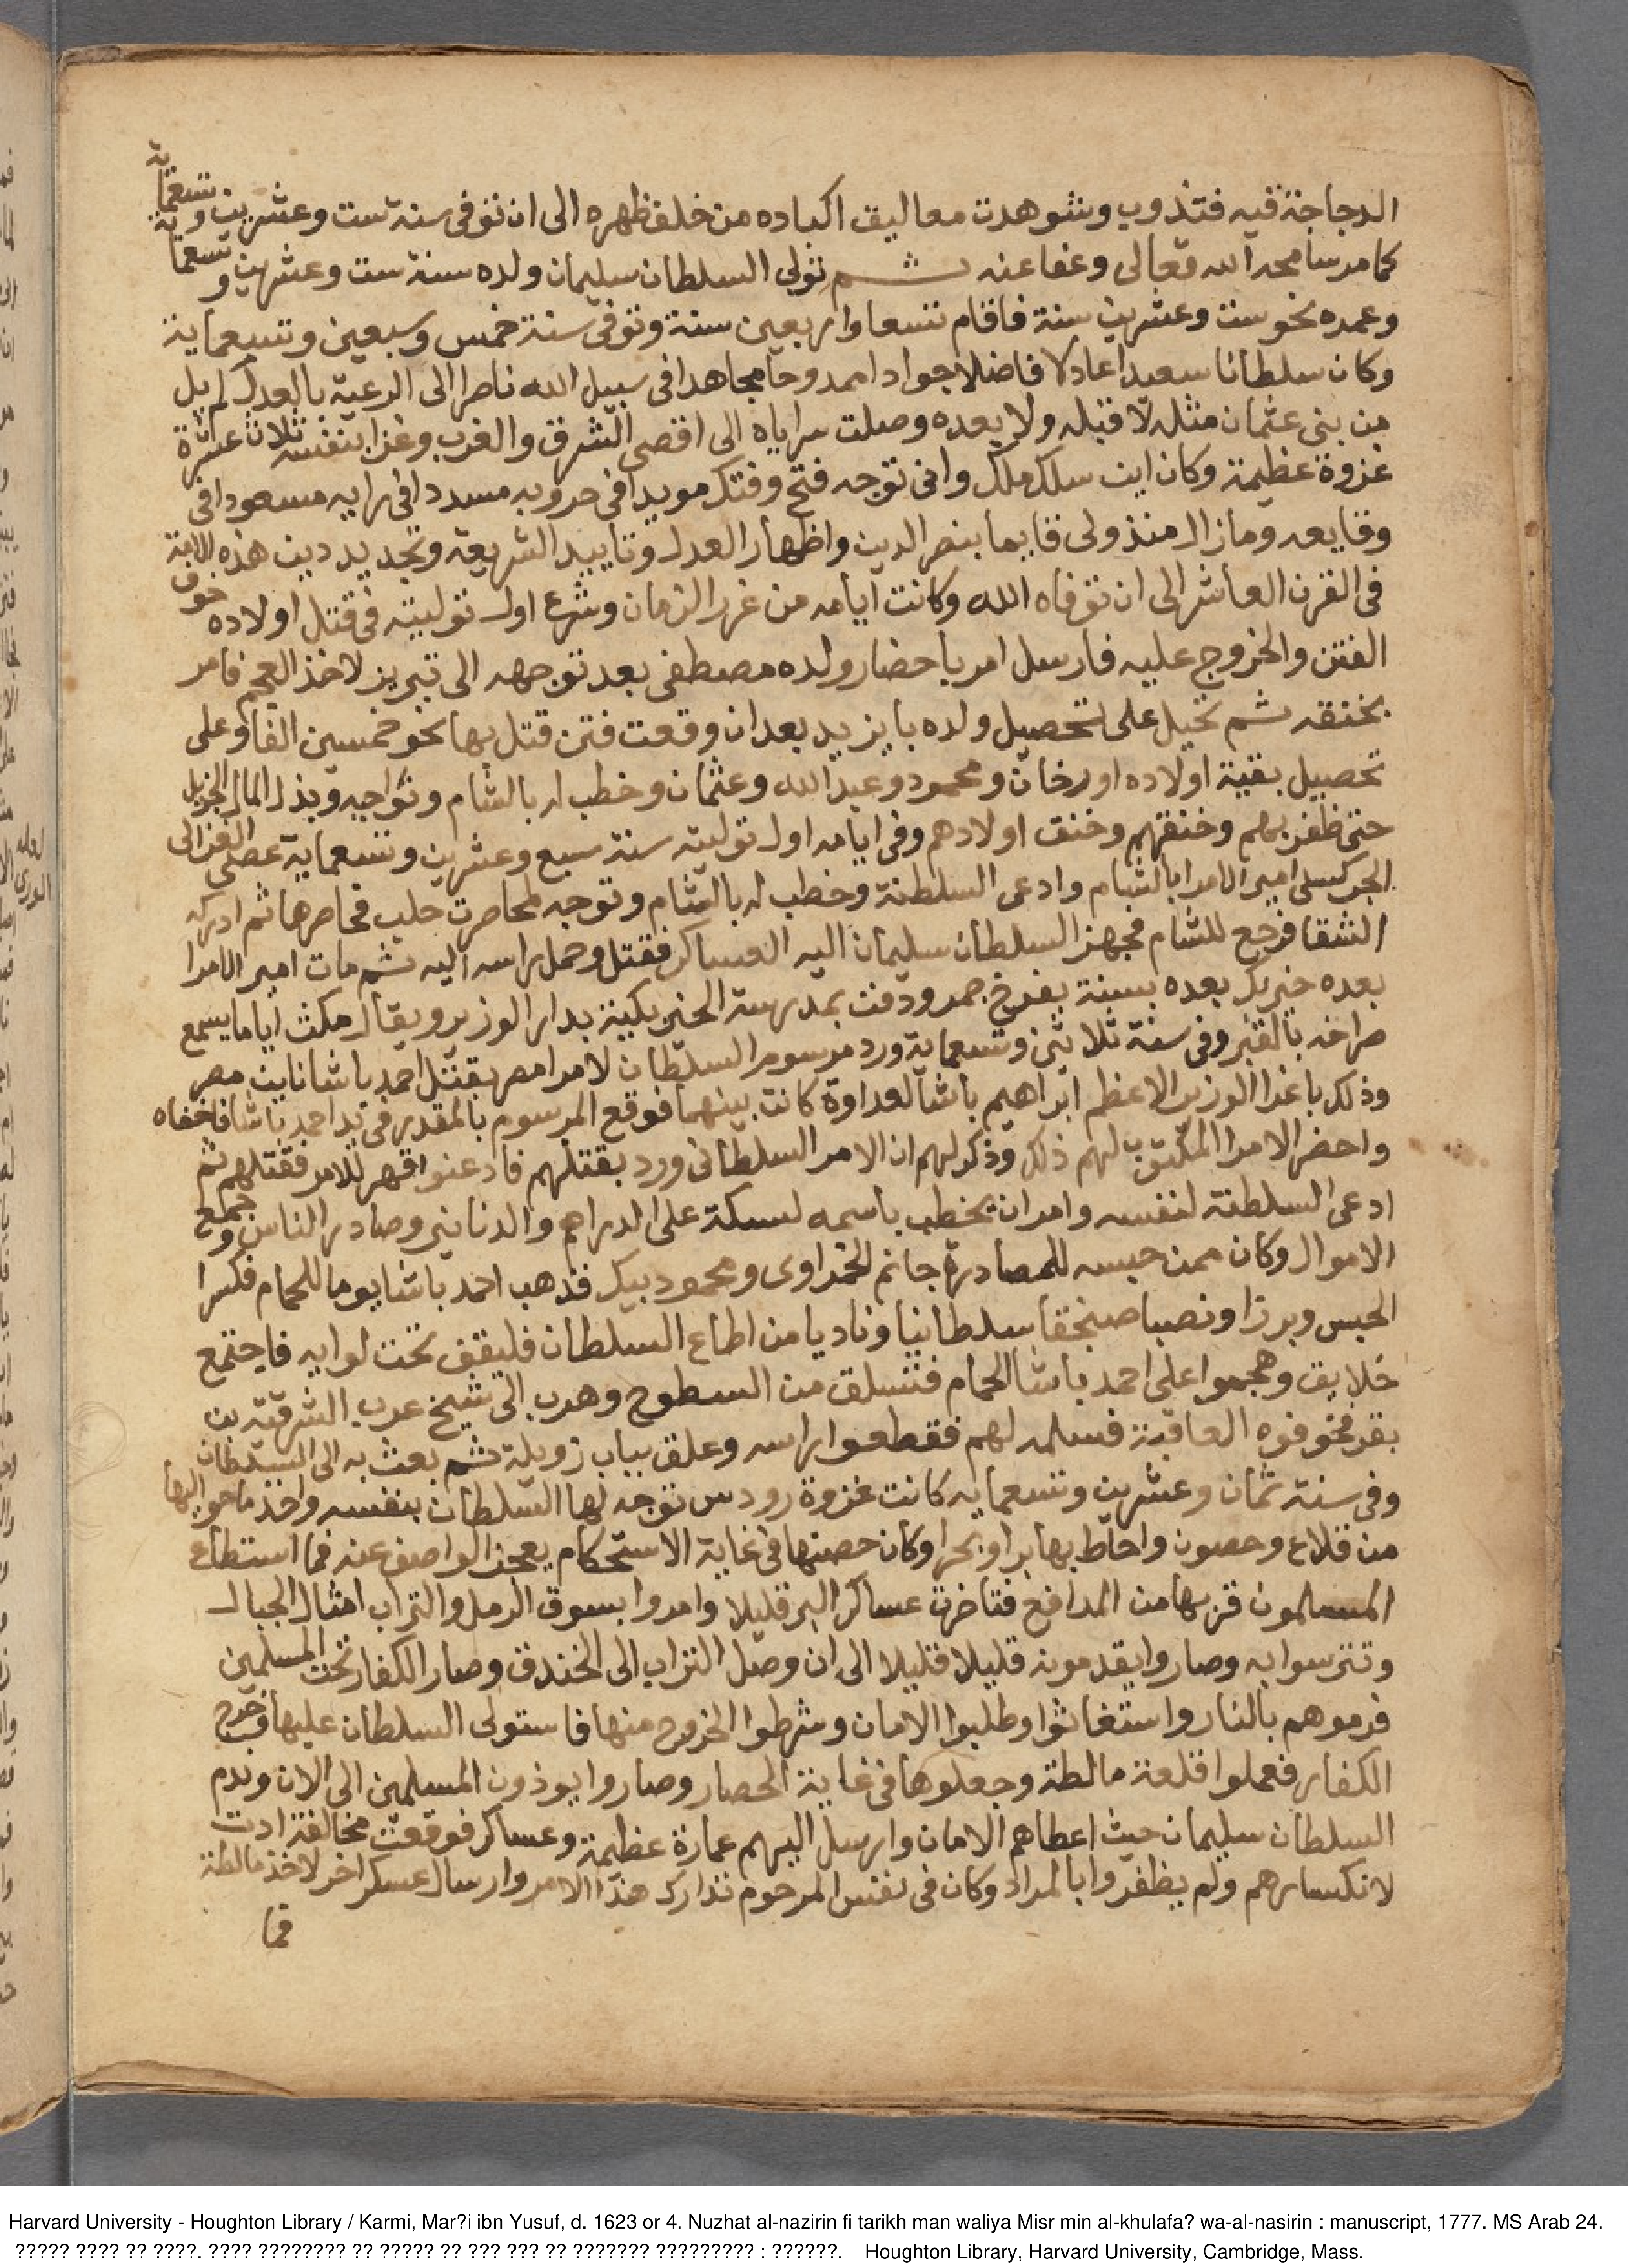 الدجاجة فيه فتذوب وشوهدت معاليق اكباده من خلف ظهره الى ان توفى سنة ست وعشرين وتسعماية
كما مر سامحه الله تعالى وعفا عنه ثم تولى السلطان سليمان ولده سنة ست وعشرين وتسعماية
وعمره نحو ست وعشرين سنة فاقام تسعا واربعين سنة وتوفى سنة خمس وسبعين وتسعماية
وكان سلطانا سعيدا عادلا فاضلا جوادا ممدوحا مجاهدا فى سبيل الله ناصرا الى الرعية بالعدل لم يل
من بنى عثمان مثله لا قبله ولا بعده وصلت سراياه الى اقصى الشرق والغرب وغزا بنفسه ثلاث عشرة
غزوة عظيمة وكان اين سلك ملك وانى توجه فتح وفتك مويدا فى حروبه مسددا فى رايه مسعودا فى
وقايعه وما زال منذ ولى قايما بنصر الدين واظهار العدل وتاييد الشريعة وتجديد دين هذه الامة
فى القرن العاشر الى ان توفاه الله وكانت ايامه من غرر الزمان وشرع اول توليته فى قتل اولاده خوف
الفتن والخروج عليه فارسل امر باحضار ولده مصطفى بعد توجهه الى تبريز لاخذ العجم فامر
بخنقه ثم تحيل على تحصيل ولده بايزيد بعد ان وقعت فتن قتل بها نحو خمسين الفا وعلى
تحصيل بقية اولاده اورخان ومحمود وعبد الله وعثمان وخطب له بالشام ونواحيه وبذل المال الجزيل
حتى ظفر بهم وخنقهم وخنق اولادهم وفى ايامه اول توليته سنة سبع وعشرين وتسعماية عصى الغزالى
الجركسى امير الامرا بالشام وادعى السلطنة وخطب له بالشام وتوجه لمحاصرت حلب فحاصرها ثم ادركه
الشقا فرجع للشام فجهز السلطان سليمان اليه العساكر فقتل وحمل راسه اليه ثم مات امير الامرا
بعده خيربك بعده بسنة بفرخ جمر ودفن بمدرسة الخيربكية بدار الوزير ويقال مكث اياما يسمع
صراخه بالقبر وفى سنة ثلاثين وتسعماية ورد مرسوم السلطان لامرا مصر بقتل احمد باشا نايب مصر
وذلك باغرا الوزير الاعظم ابراهيم باشا لعداوة كانت بينهما فوقع المرسوم بالمقدر فى يد احمد باشا فاخفاه
واحضر الامرا المكتوب لهم ذلك وذكر لهم ان الامر السلطانى ورد بقتلهم فادعنوا قهر للامر فقتلهم ثم
ادعى السلطنة لنفسه وامر ان يخطب باسمه لسكة على الدراهم والدنانير وصادر الناس وجمع
الاموال وكان ممن حبسه للمصادرة جانم الحمزاوى ومحمود بيك فذهب احمد باشا يوما للحمام فكسرا
الحبس وبرزا ونصبا صنجقا سلطانيا وناديا من اطاع السلطان فليقف تحت لوايه فاجتمع
خلايق وهجموا على احمد باشا الحمام فتسلق من السطوح وهرب الى شيخ عرب الشرقية بن
بقر فخوفوه العاقبة فسلمه لهم فقطعوا راسه وعلق بباب زويلة ثم بعث به الى السلطان
وفى سنة ثمان وعشرين وتسعمايه كانت غزوة رودس توجه لها السلطان بنفسه واخذ ما حواليها
من قلاع وحصون واحاط بها برا وبحرا وكان حصنها فى غاية الاستحكام يعجز الواصف عنه فما استطاع
المسلمون قربها من المدافع فتاخرت عساكر البر قليلا وامروا بسوق الرمل والتراب امثال الجبال
وتترسوا به وصاروا يقدمونه قليلا قليلا الى ان وصل التراب الى الخندق وصار الكفار تحت المسلمين
فرموهم بالنار واستغاثوا وطلبوا الامان وشرطوا الخروج منها فاستولى السلطان عليها وخرج
الكفار فعملوا قلعة مالطة وجعلوها فى غاية الحصار وصاروا يوذون المسلمين الى الان وندم
السلطان سليمان حيث اعطاهم الامان وارسل اليهم عمارة عظيمة وعساكر فوقعت مخالفة ادت
لانكسارهم ولم يظفروا بالمراد وكان فى نفس المرحوم تدارك هذا الامر وارسال عسكر اخر لاخذ مالطة
فما
لعله
الغورى
Harvard University - Houghton Library / Karmi, Mar?i ibn Yusuf, d. 1623 or 4. Nuzhat al-nazirin fi tarikh man waliya Misr min al-khulafa? wa-al-nasirin : manuscript, 1777. MS Arab 24.
????? ???? ?? ????. ???? ???????? ?? ????? ?? ??? ??? ?? ??????? ????????? : ??????. Houghton Library, Harvard University, Cambridge, Mass.